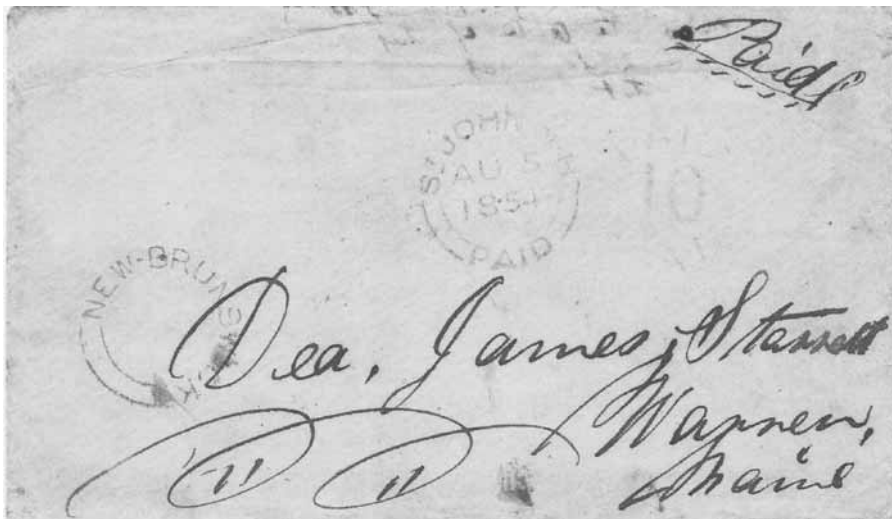 Paid
ST JOHN
AU 5
1854
PAID
10
NEW-BRUNSWICK
Dea. James Starrett
Warren,
Maine